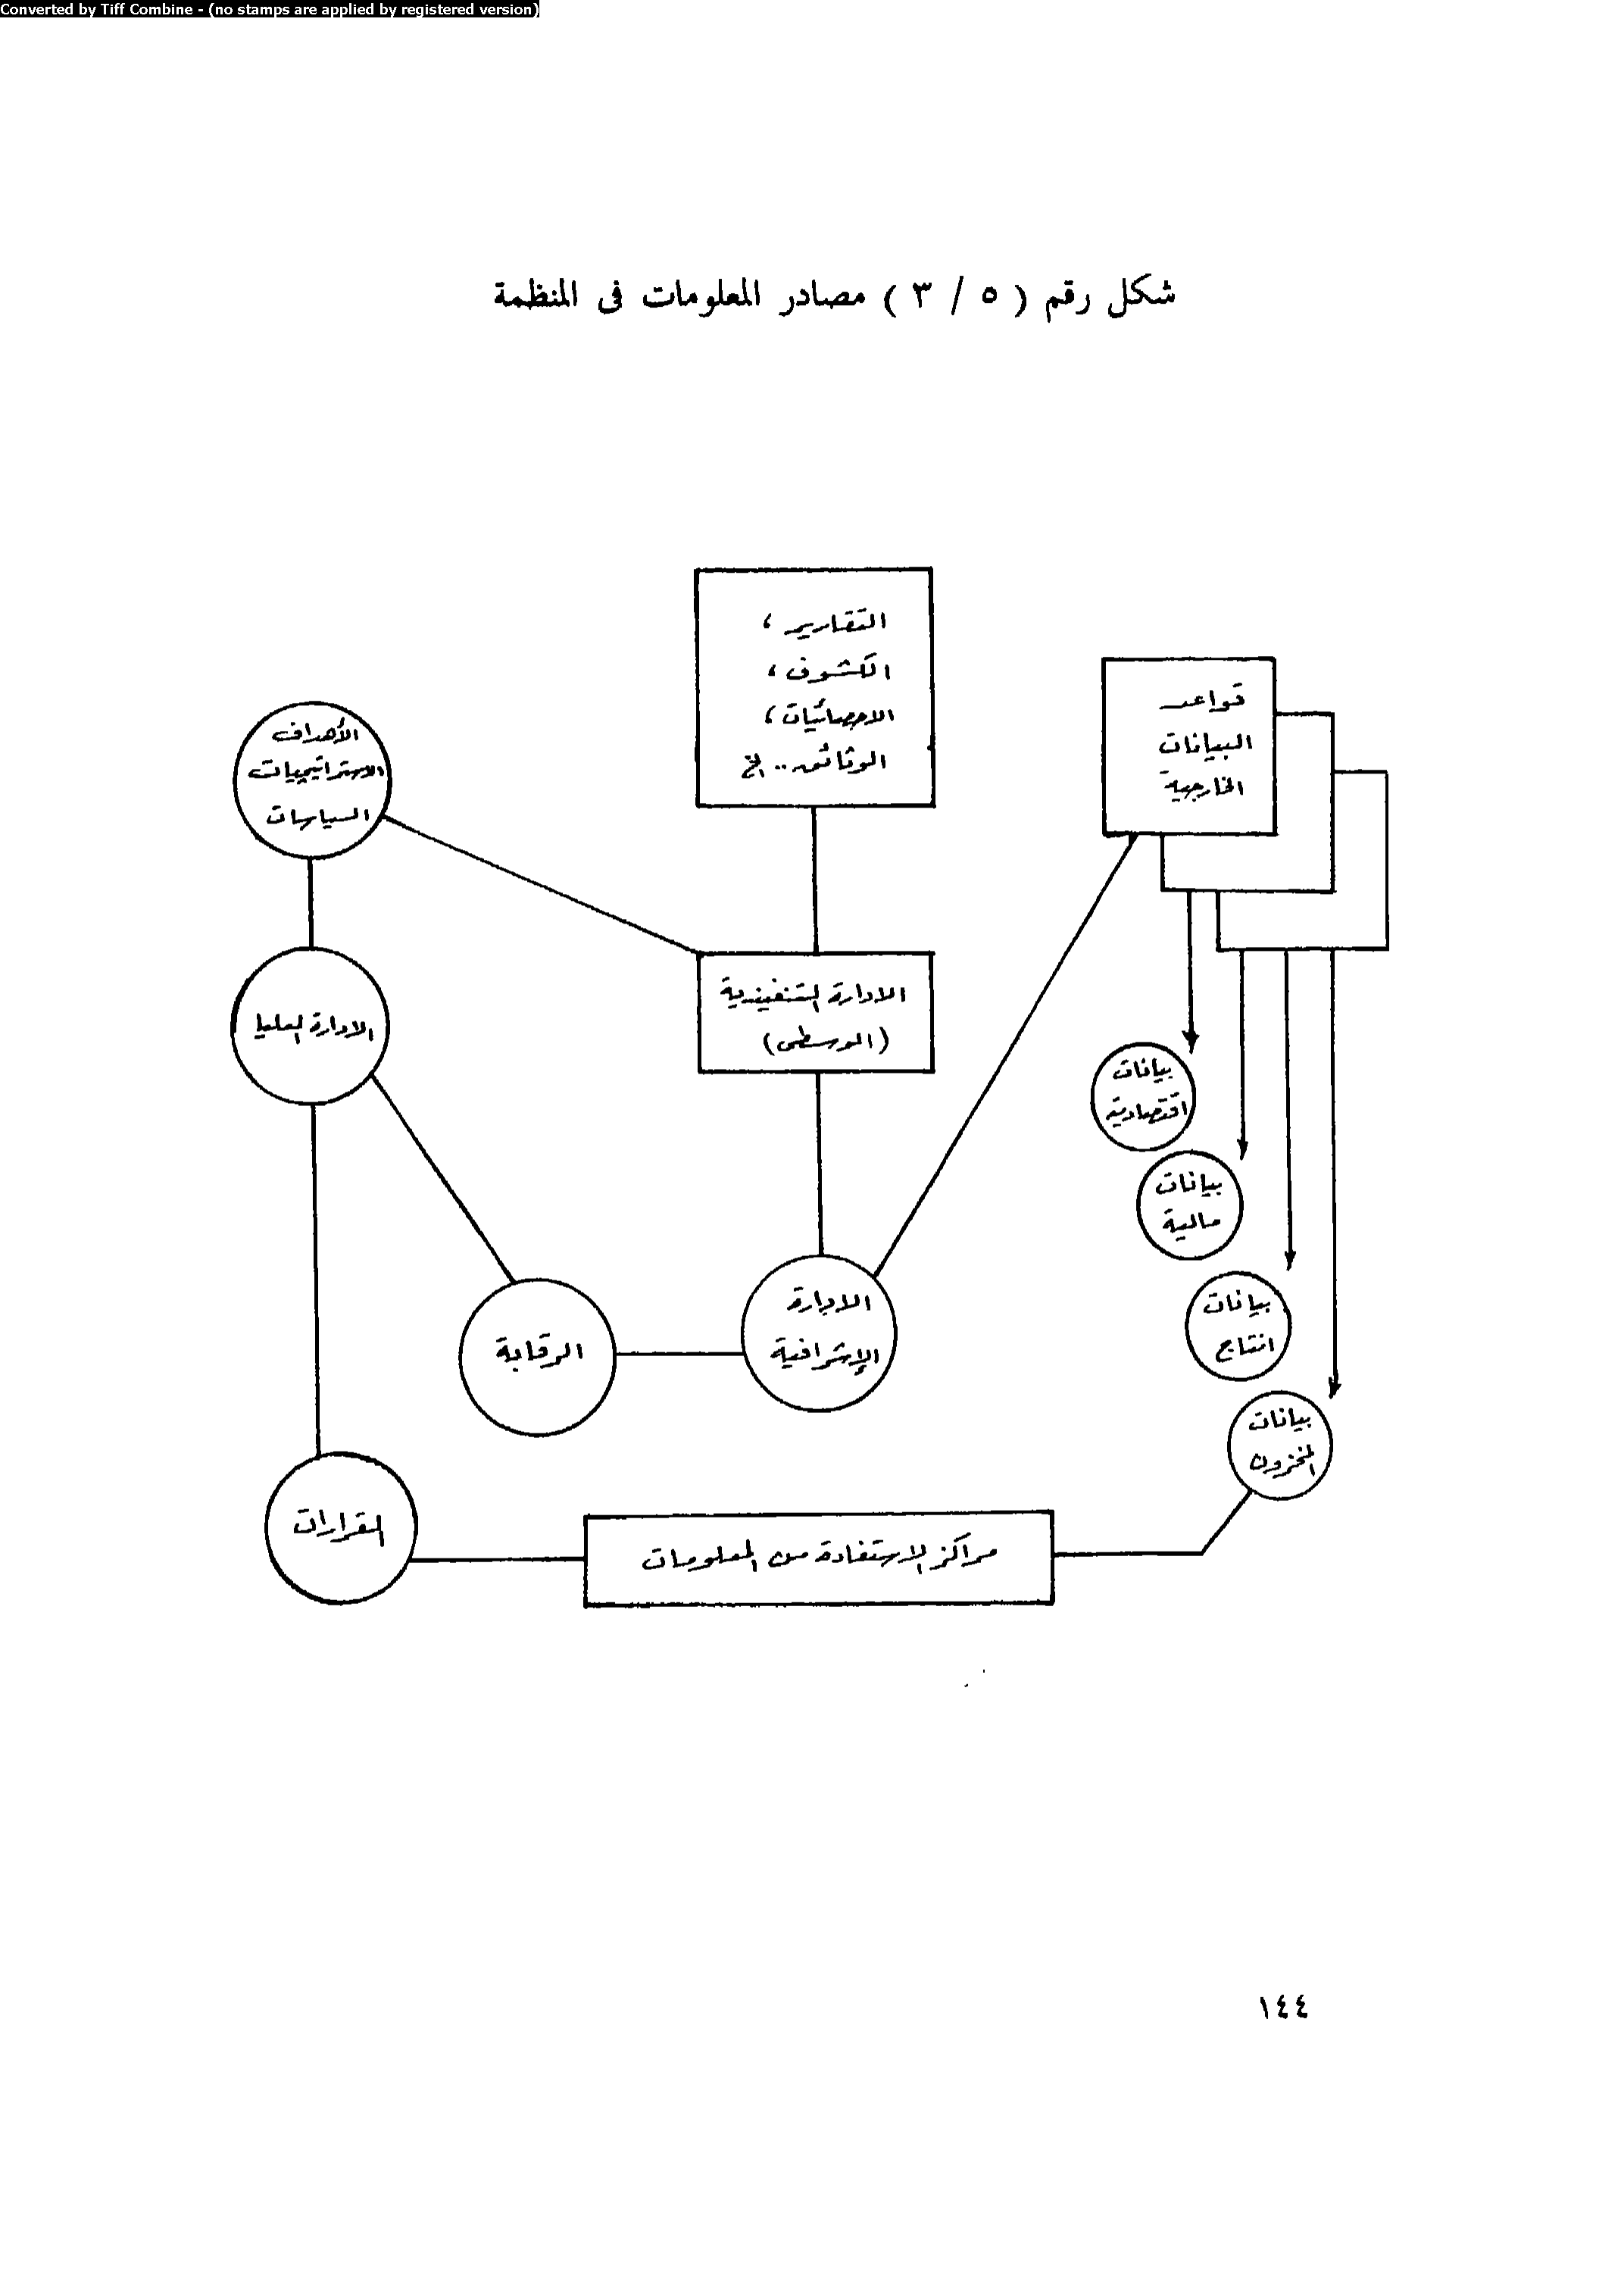 Converted by Tiff Combine - (no stamps are applied by registered version)
شكل رقم ( ٥ / ٣ ) مصادر المعلومات فى المنظمة
التقارير ،
الكشوف ،
الاحصائيات ،
الوثائق .. الخ
قواعد
البيانات
الخارجية
الأهداف
الاستراتيجيات
السياسات
الادارة التنفيذية
(الوسطى)
الادارة العليا
بيانات
اقتصادية
بيانات
مالية
بيانات
انتاج
بيانات
المخزون
الادارة
الإشرافية
الرقابة
القرارات
مراكز الاستفادة من المعلومات
١٤٤